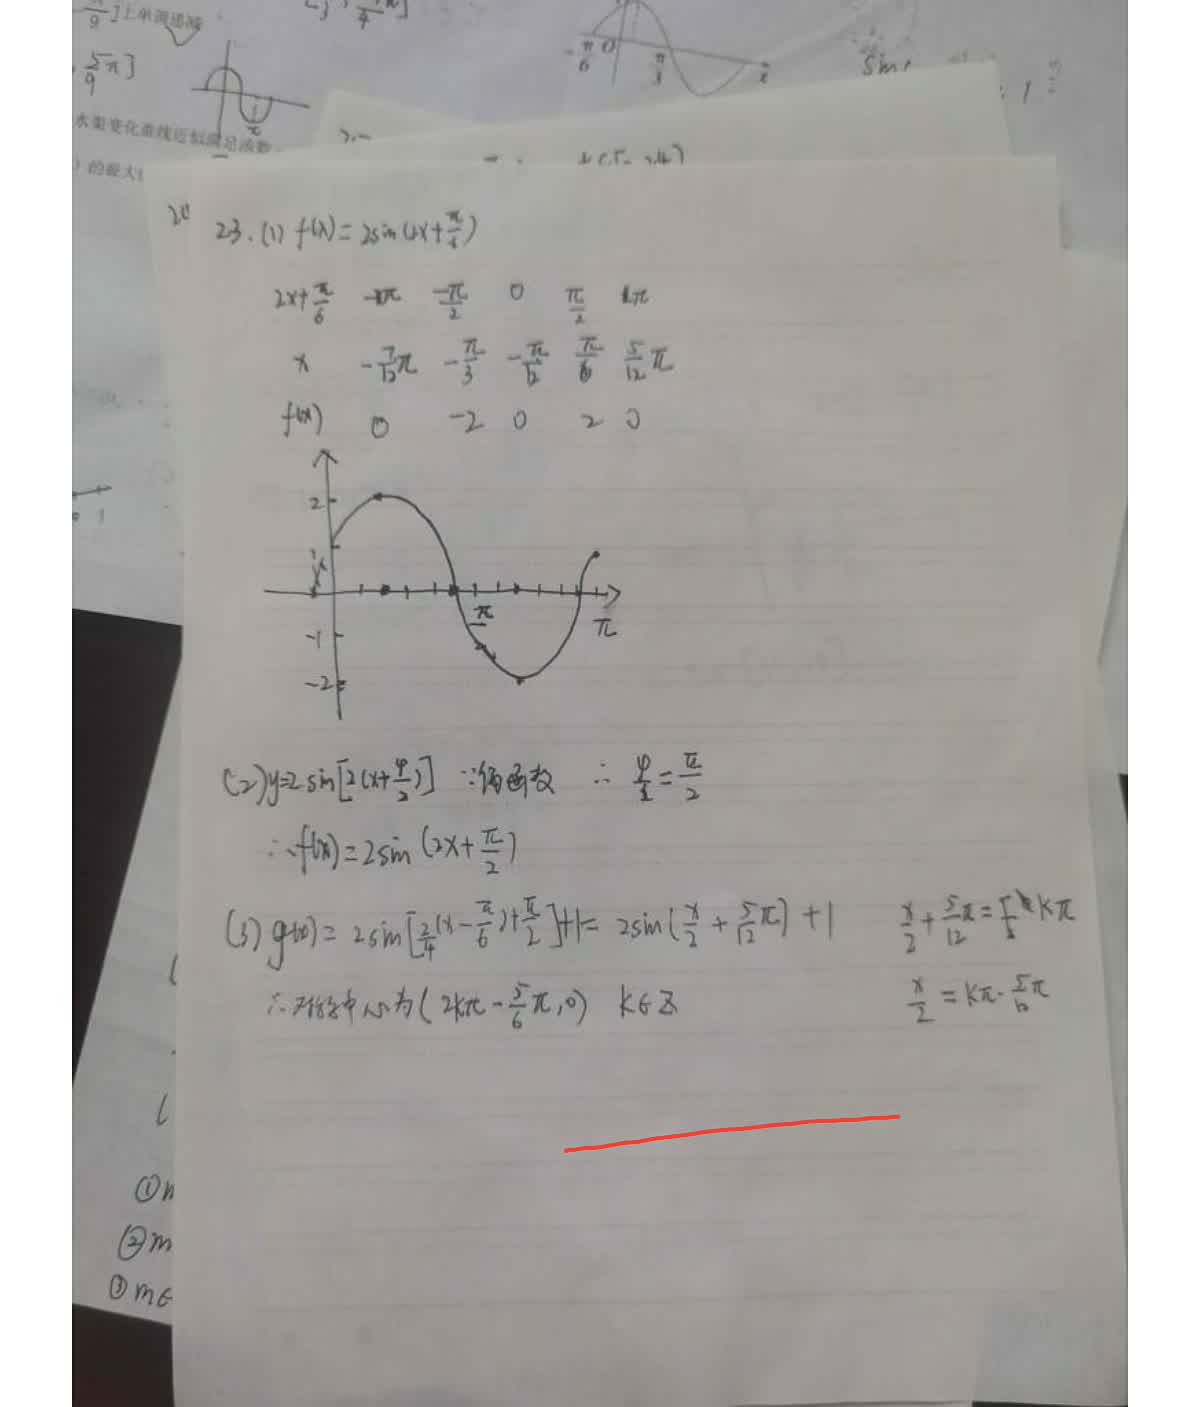 π/9]上单调递减
5/9π]
水果变化曲线近似满足函数
)的最大
-π/6 O π/3
23.(1) f(x)=2sin(2x+π/6)
2x+π/6 -π -π/2 0 π/2 π
x -7/12π -π/3 -π/12 π/6 5/12π
f(x) 0 -2 0 2 0
2
π
-1
π
-2
(2)y=2sin[2(x+φ/2)] ∵偶函数 ∴ φ/1=π/2
∴f(x)=2sin(2x+π/2)
(3) g(x)=2sin[2/4(x-π/6)+π/2]+1=2sin(x/2+5/12π)+1 x/2+5/12π=kπ
∴对称中心为(2kπ-5/6π,0) k∈Z x/2=kπ-5/12π
①m
②m
③m∈